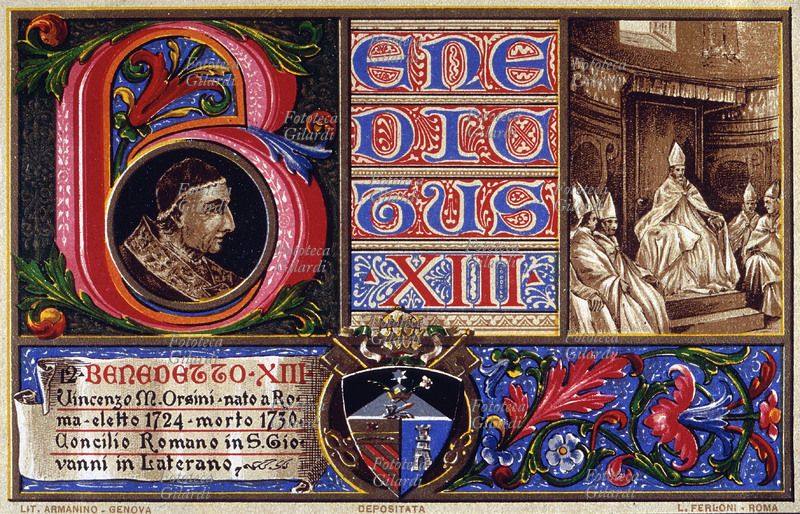 BENE
DIC
TUS
XIII
12 BENEDETTO·XIII·
Vincenzo M. Orsini·nato a Ro-
ma-eletto 1724-morto 1730.
Concilio Romano in S. Gio-
vanni in Laterano,
LIT. ARMANINO - GENOVA
DEPOSITATA
L. FERLONI - ROMA
Fototeca
Gilardi